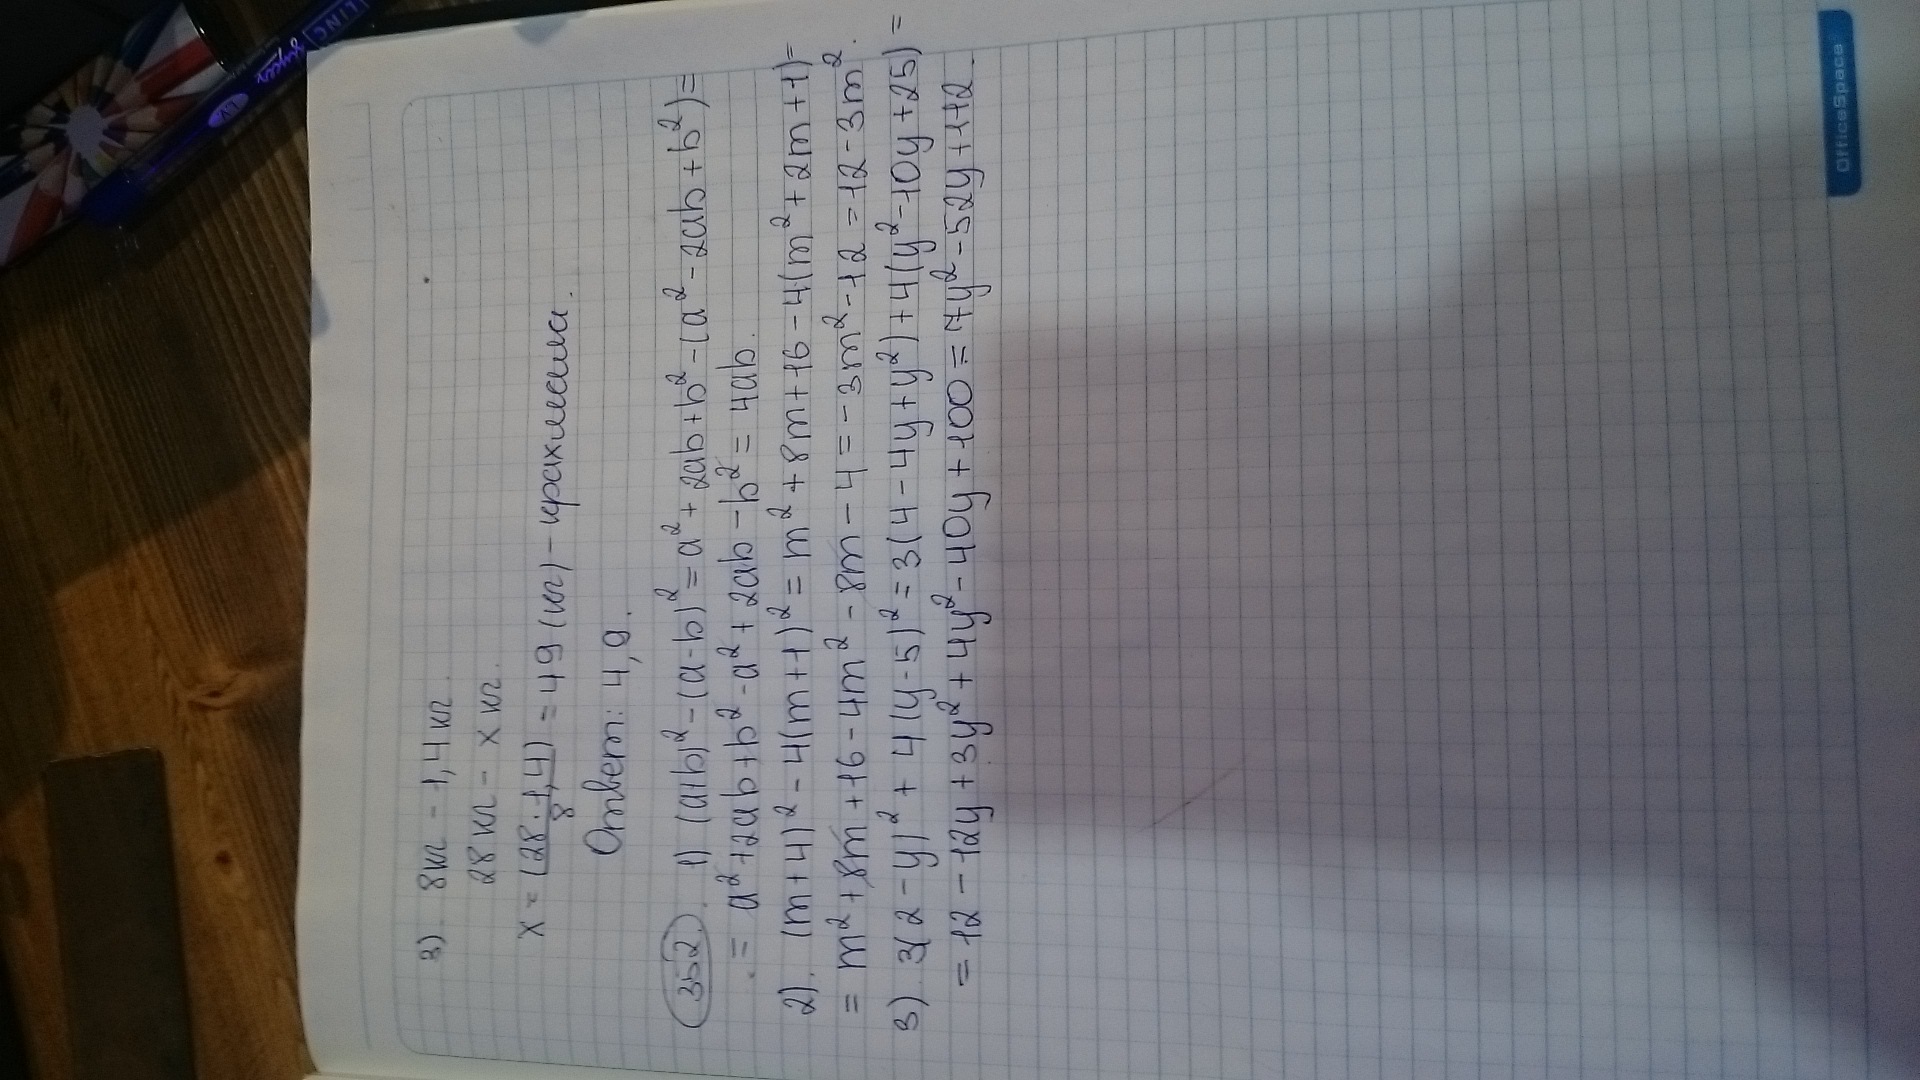 3). 8кг - 1,4 кг.
28 кг - x кг.
x = (28 · 1,4) / 8 = 49 (кг) - крахмала.
Ответ: 4,9.
352. 1) (a+b)² - (a-b)² = a² + 2ab + b² - (a² - 2ab + b²) =
= a² + 2ab + b² - a² + 2ab - b² = 4ab.
2). (m+4)² - 4(m+1)² = m² + 8m + 16 - 4(m² + 2m + 1) =
= m² + 8m + 16 - 4m² - 8m - 4 = -3m² - 12 = 12 - 3m².
3). 3(2 - y)² + 4(y - 5)² = 3(4 - 4y + y²) + 4(y² - 10y + 25) =
= 12 - 12y + 3y² + 4y² - 40y + 100 = 7y² - 52y + 112.
OfficeSpace
LINC